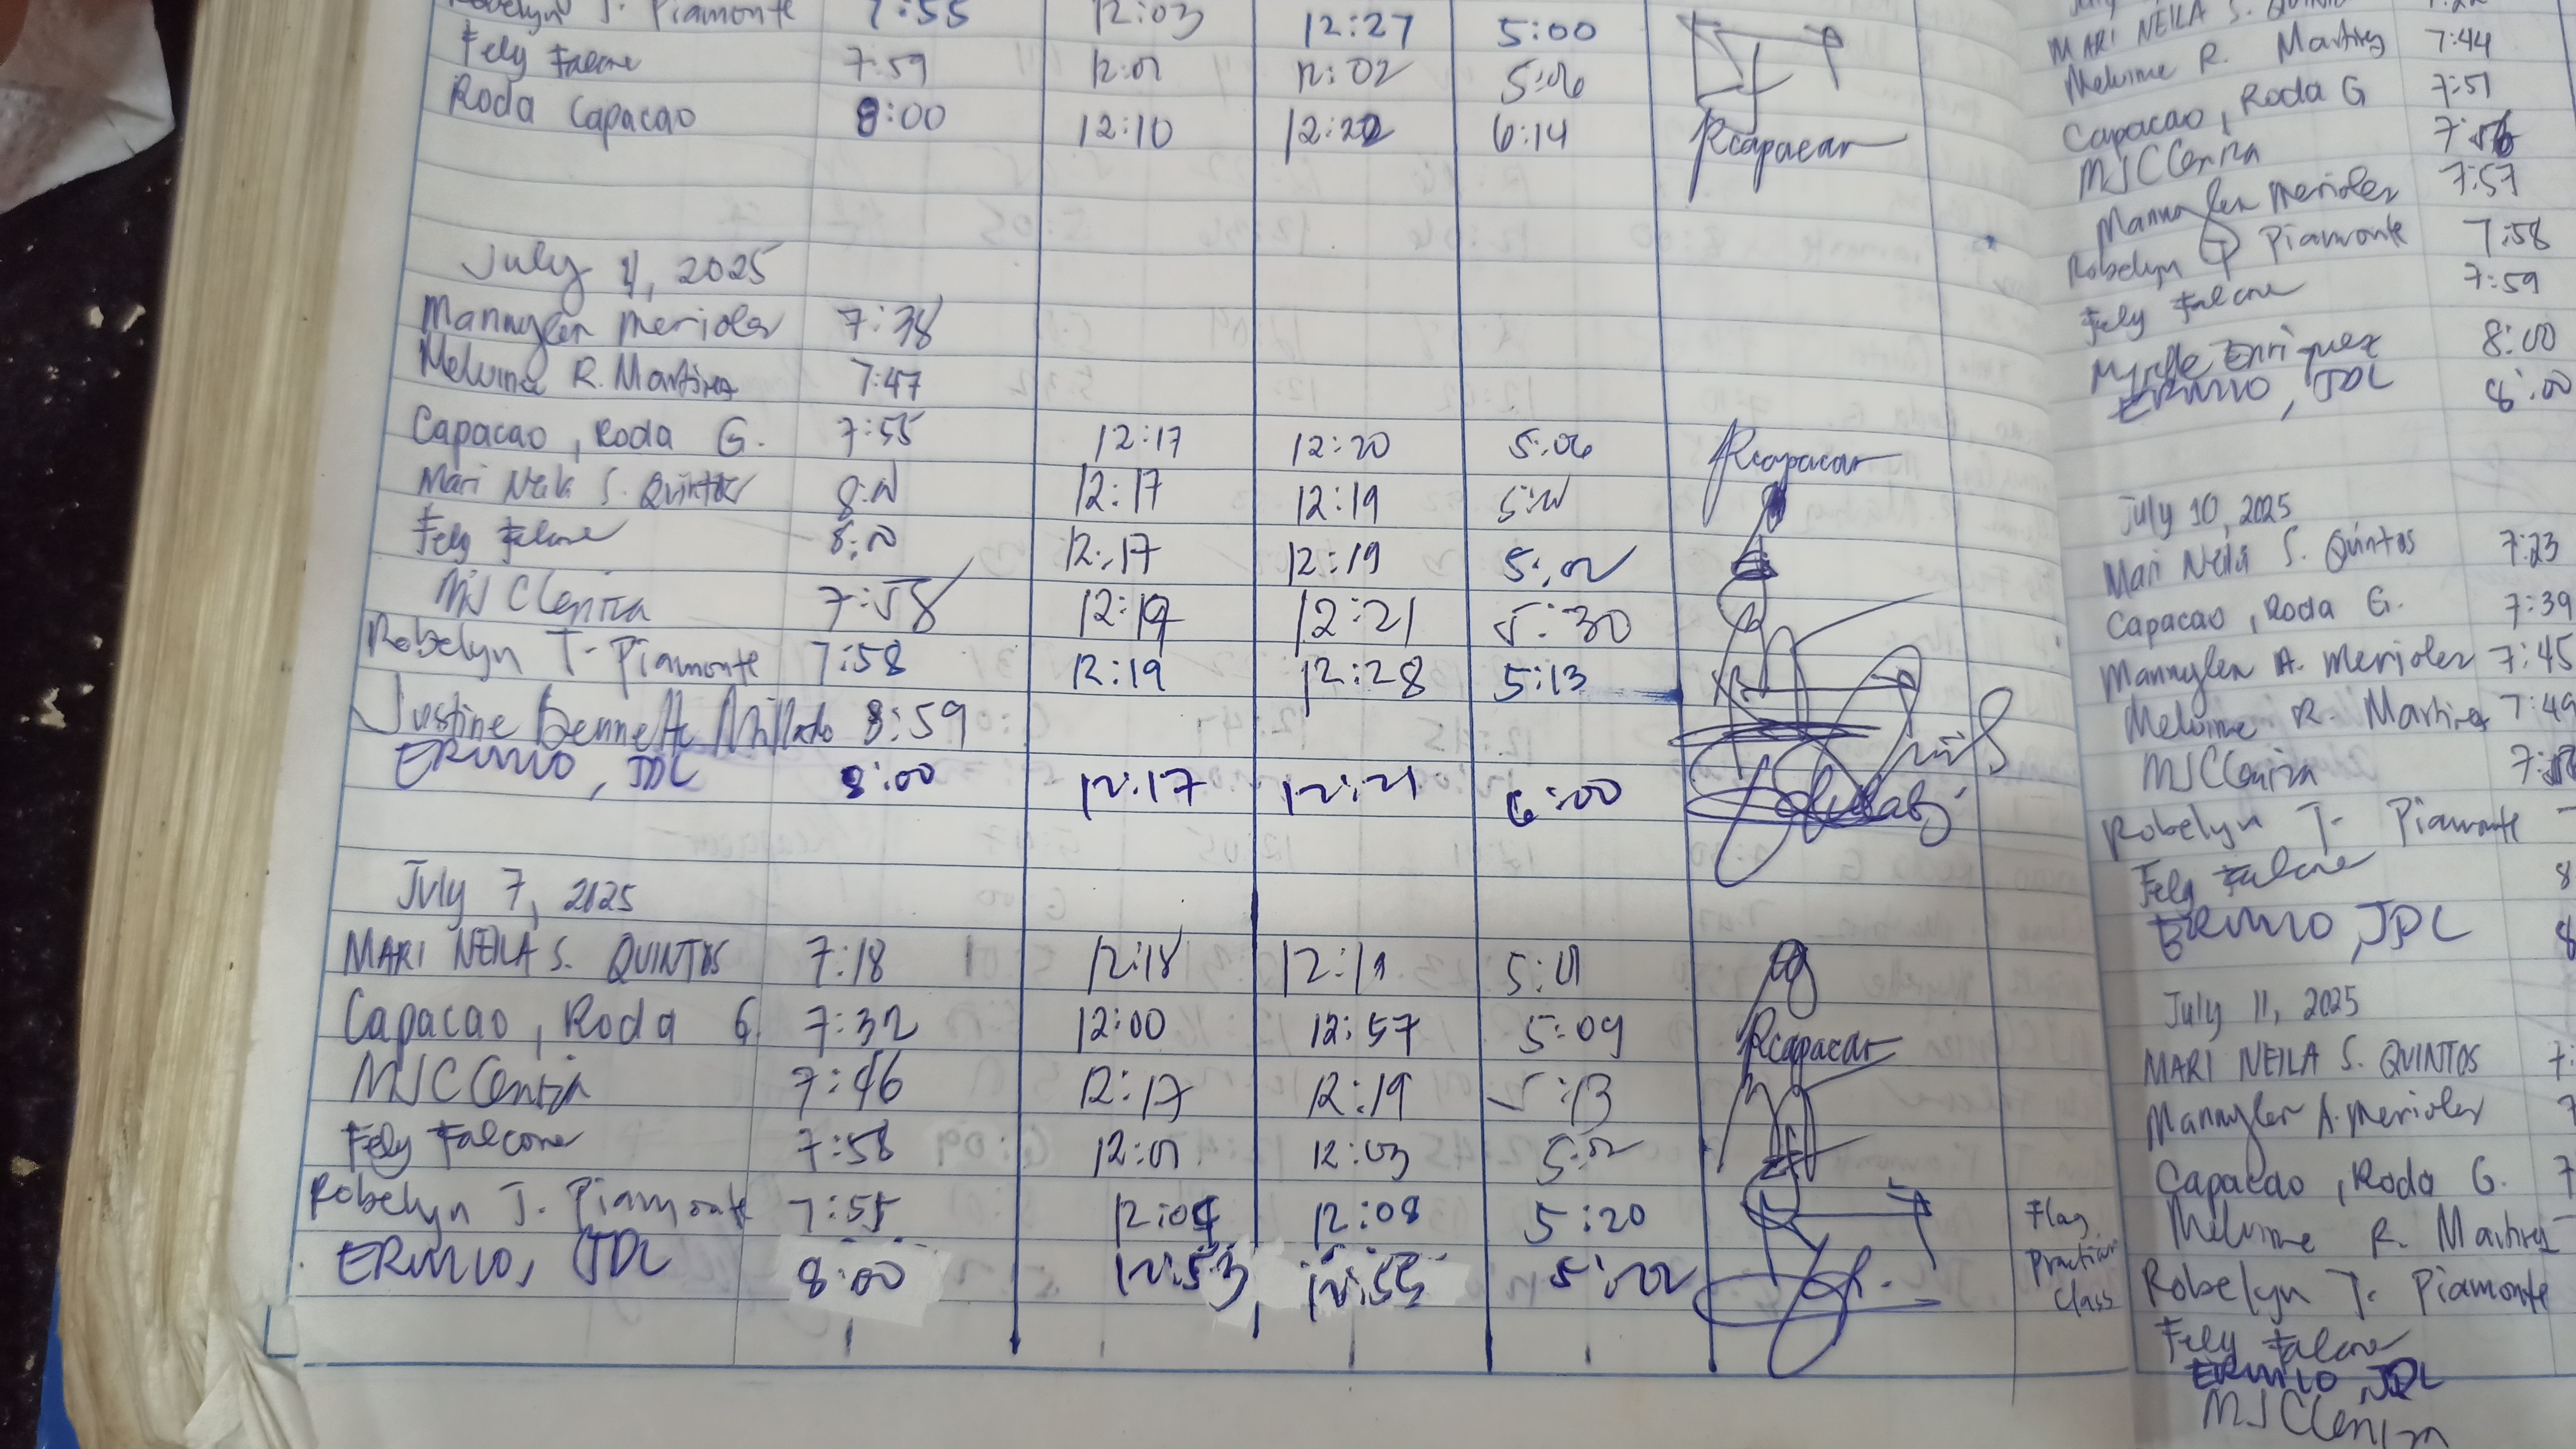 Robelyn T. Piamonte 7:55 12:03 12:27 5:00
Fely Falcone 7:59 12:01 12:02 5:06
Roda Capacao 8:00 12:10 12:22 6:14 Rcapacao
July 4, 2025
Mannylen Merioles 7:38
Melvine R. Martirez 7:47
Capacao, Roda G. 7:55 12:17 12:20 5:06 Rcapacao
Mari Neila S. Quintos 8:00 12:17 12:19
Fely Falcone 8:00 12:17 12:19 5:02
MJC Cleniza 7:58 12:19 12:21 5:30
Robelyn T. Piamonte 7:58 12:19 12:28 5:13
Justine Bennett Millado 8:59
ERMIO, JDL 8:00 12:17 12:21 6:00
July 7, 2025
MARI NEILA S. QUINTOS 7:18 12:18 12:19 5:01
Capacao, Roda G. 7:32 12:00 12:57 5:09 Rcapacao
MJC Cleniza 7:46 12:17 12:19 5:13
Fely Falcone 7:58 12:01 12:03 5:02
Robelyn T. Piamonte 7:55 12:04 12:08 5:20 Flag
ERMIO, JDL 8:00 12:53 12:55 5:02 Practice
Class
MARI NEILA S. QUINTOS
Melvine R. Martirez 7:44
Capacao, Roda G 7:51
MJC Cleniza 7:56
Mannylen Merioles 7:57
Robelyn T Piamonte 7:58
Fely Falcone 7:59
Myrelle Enriquez 8:00
ERMIO, JDL 8:00
July 10, 2025
Mari Neila S. Quintos 7:23
Capacao, Roda G. 7:39
Mannylen A. Merioles 7:45
Melvine R. Martirez 7:49
MJC Cleniza
Robelyn T. Piamonte
Fely Falcone 8
ERMIO, JDL 8
July 11, 2025
MARI NEILA S. QUINTOS 7:
Mannylen A. Merioles 7
Capacao, Roda G. 7
Melvine R. Martirez
Robelyn T. Piamonte
Fely Falcone
ERMIO, JDL
MJC Cleniza